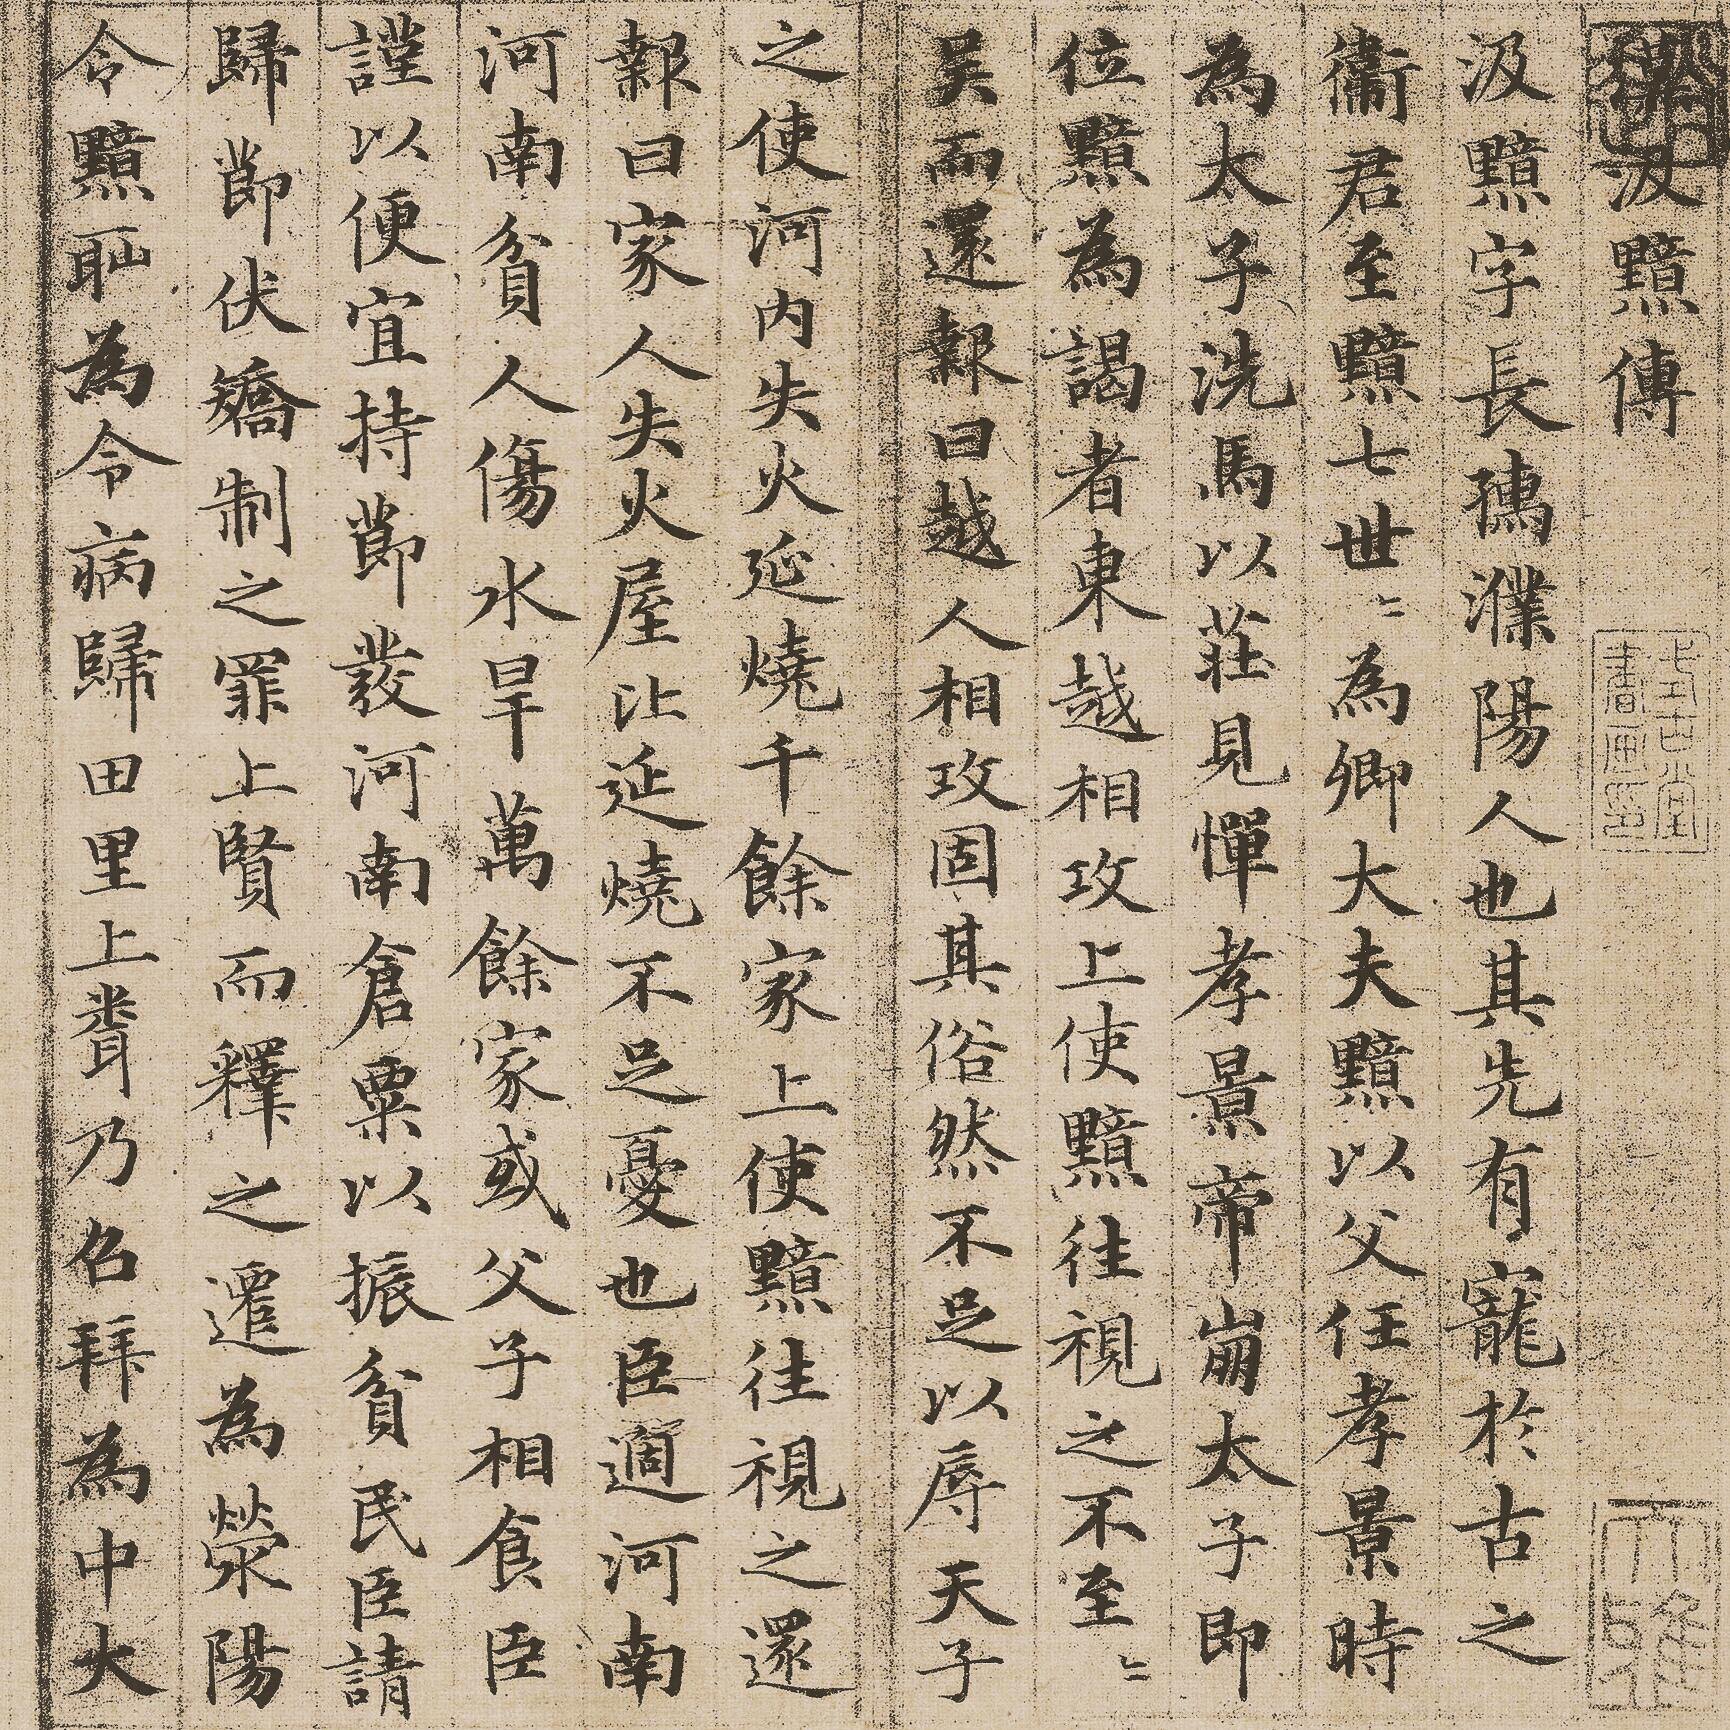 汲黯傳
汲黯字長孺濮陽人也其先有寵於古之
衞君至黯七世〻為卿大夫黯以父任孝景時
為太子洗馬以莊見憚孝景帝崩太子即
位黯為謁者東越相攻上使黯往視之不至〻
吴而還報曰越人相攻固其俗然不足以辱天子
之使河內失火延燒千餘家上使黯往視之還
報曰家人失火屋比延燒不足憂也臣過河南
河南貧人傷水旱萬餘家或父子相食臣
謹以便宜持節發河南倉粟以振貧民臣請
歸節伏矯制之罪上賢而釋之遷為滎陽
令黯恥為令病歸田里上聞乃召拜為中大
真古堂書画印